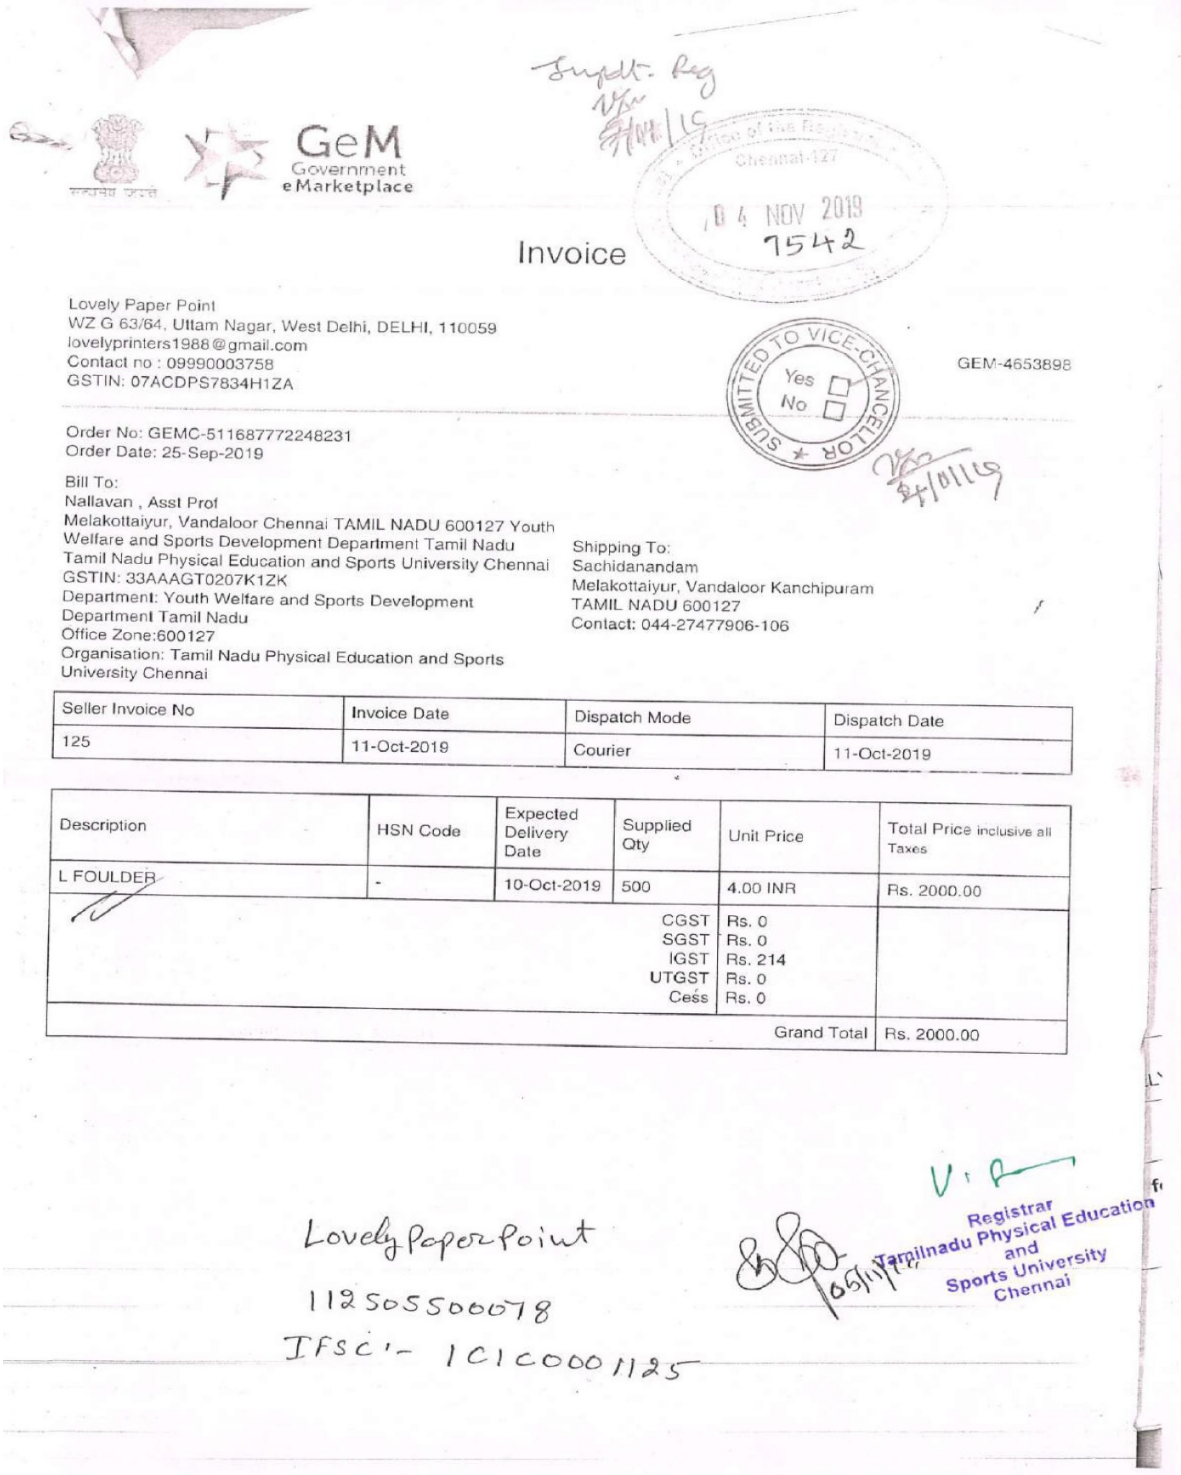 Supdt. Reg
सत्यमेव जयते
GeM
Government
eMarketplace
Office of the Registrar
Chennai-127
04 NOV 2019
7542
Invoice
Lovely Paper Point
WZ G 63/64, Uttam Nagar, West Delhi, DELHI, 110059
lovelyprinters1988@gmail.com
Contact no : 09990003758
GSTIN: 07ACDPS7834H1ZA
SUBMITTED TO VICE-CHANCELLOR
Yes
No
GEM-4653898
Order No: GEMC-511687772248231
Order Date: 25-Sep-2019
Bill To:
Nallavan , Asst Prof
Melakottaiyur, Vandaloor Chennai TAMIL NADU 600127 Youth
Welfare and Sports Development Department Tamil Nadu
Tamil Nadu Physical Education and Sports University Chennai
GSTIN: 33AAAGT0207K1ZK
Department: Youth Welfare and Sports Development
Department Tamil Nadu
Office Zone:600127
Organisation: Tamil Nadu Physical Education and Sports
University Chennai
Shipping To:
Sachidanandam
Melakottaiyur, Vandaloor Kanchipuram
TAMIL NADU 600127
Contact: 044-27477906-106
Seller Invoice No Invoice Date Dispatch Mode Dispatch Date
125 11-Oct-2019 Courier 11-Oct-2019
Description HSN Code Expected Delivery Date Supplied Qty Unit Price Total Price inclusive all Taxes
L FOULDER - 10-Oct-2019 500 4.00 INR Rs. 2000.00
CGST Rs. 0
SGST Rs. 0
IGST Rs. 214
UTGST Rs. 0
Cess Rs. 0
Grand Total Rs. 2000.00
Lovely Paper Point
112505500078
IFSC :- ICIC0001125
Registrar
Tamilnadu Physical Education
and
Sports University
Chennai